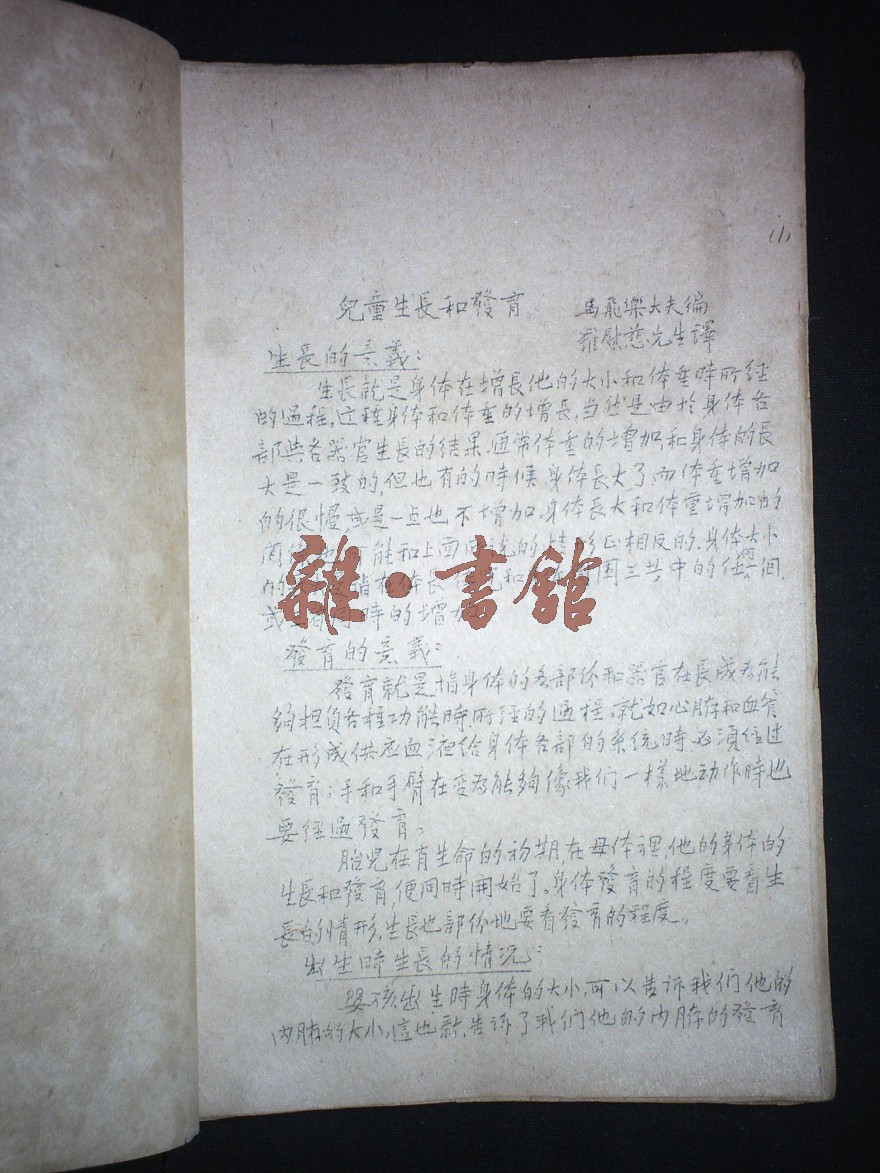 (1)
兒童生長和發育 馬飛樂大夫編
羅慰慈先生譯
生長的意義：
生長就是身体在增長他的大小和体重時所經
的過程，这种身体和体重的增長，当然是由於身体各
部與各器官生長的结果。通常体重的增加和身体的長
大是一致的，但也有的時候，身体長大了，而体重增加
的很慢，或是一点也不增加。身体長大和体重增加的
能和上面所說的情形正相反的，身体大小
的 指在体長 和 圍三者中的任何一個，
或 時的增加
雜·書館
發育的意義：
發育就是指身体的各部份和器官在長成为能
夠担負各種功能時所經的過程。就如心脏和血管
在形成供应血液给身体各部的系统時必須经过
發育；手和手臂在变为能夠像我们一樣地动作時也
要經過發育。
胎兒在有生命的初期，在母体裡，他的身体的
生長和發育，便同時開始了。身体發育的程度要看生
長的情形，生長也部份地要看發育的程度。
出生時生長的情况：
嬰孩出生時身体的大小，可以告诉我们他的
内脏的大小，這也就告诉了我们他的内脏的發育